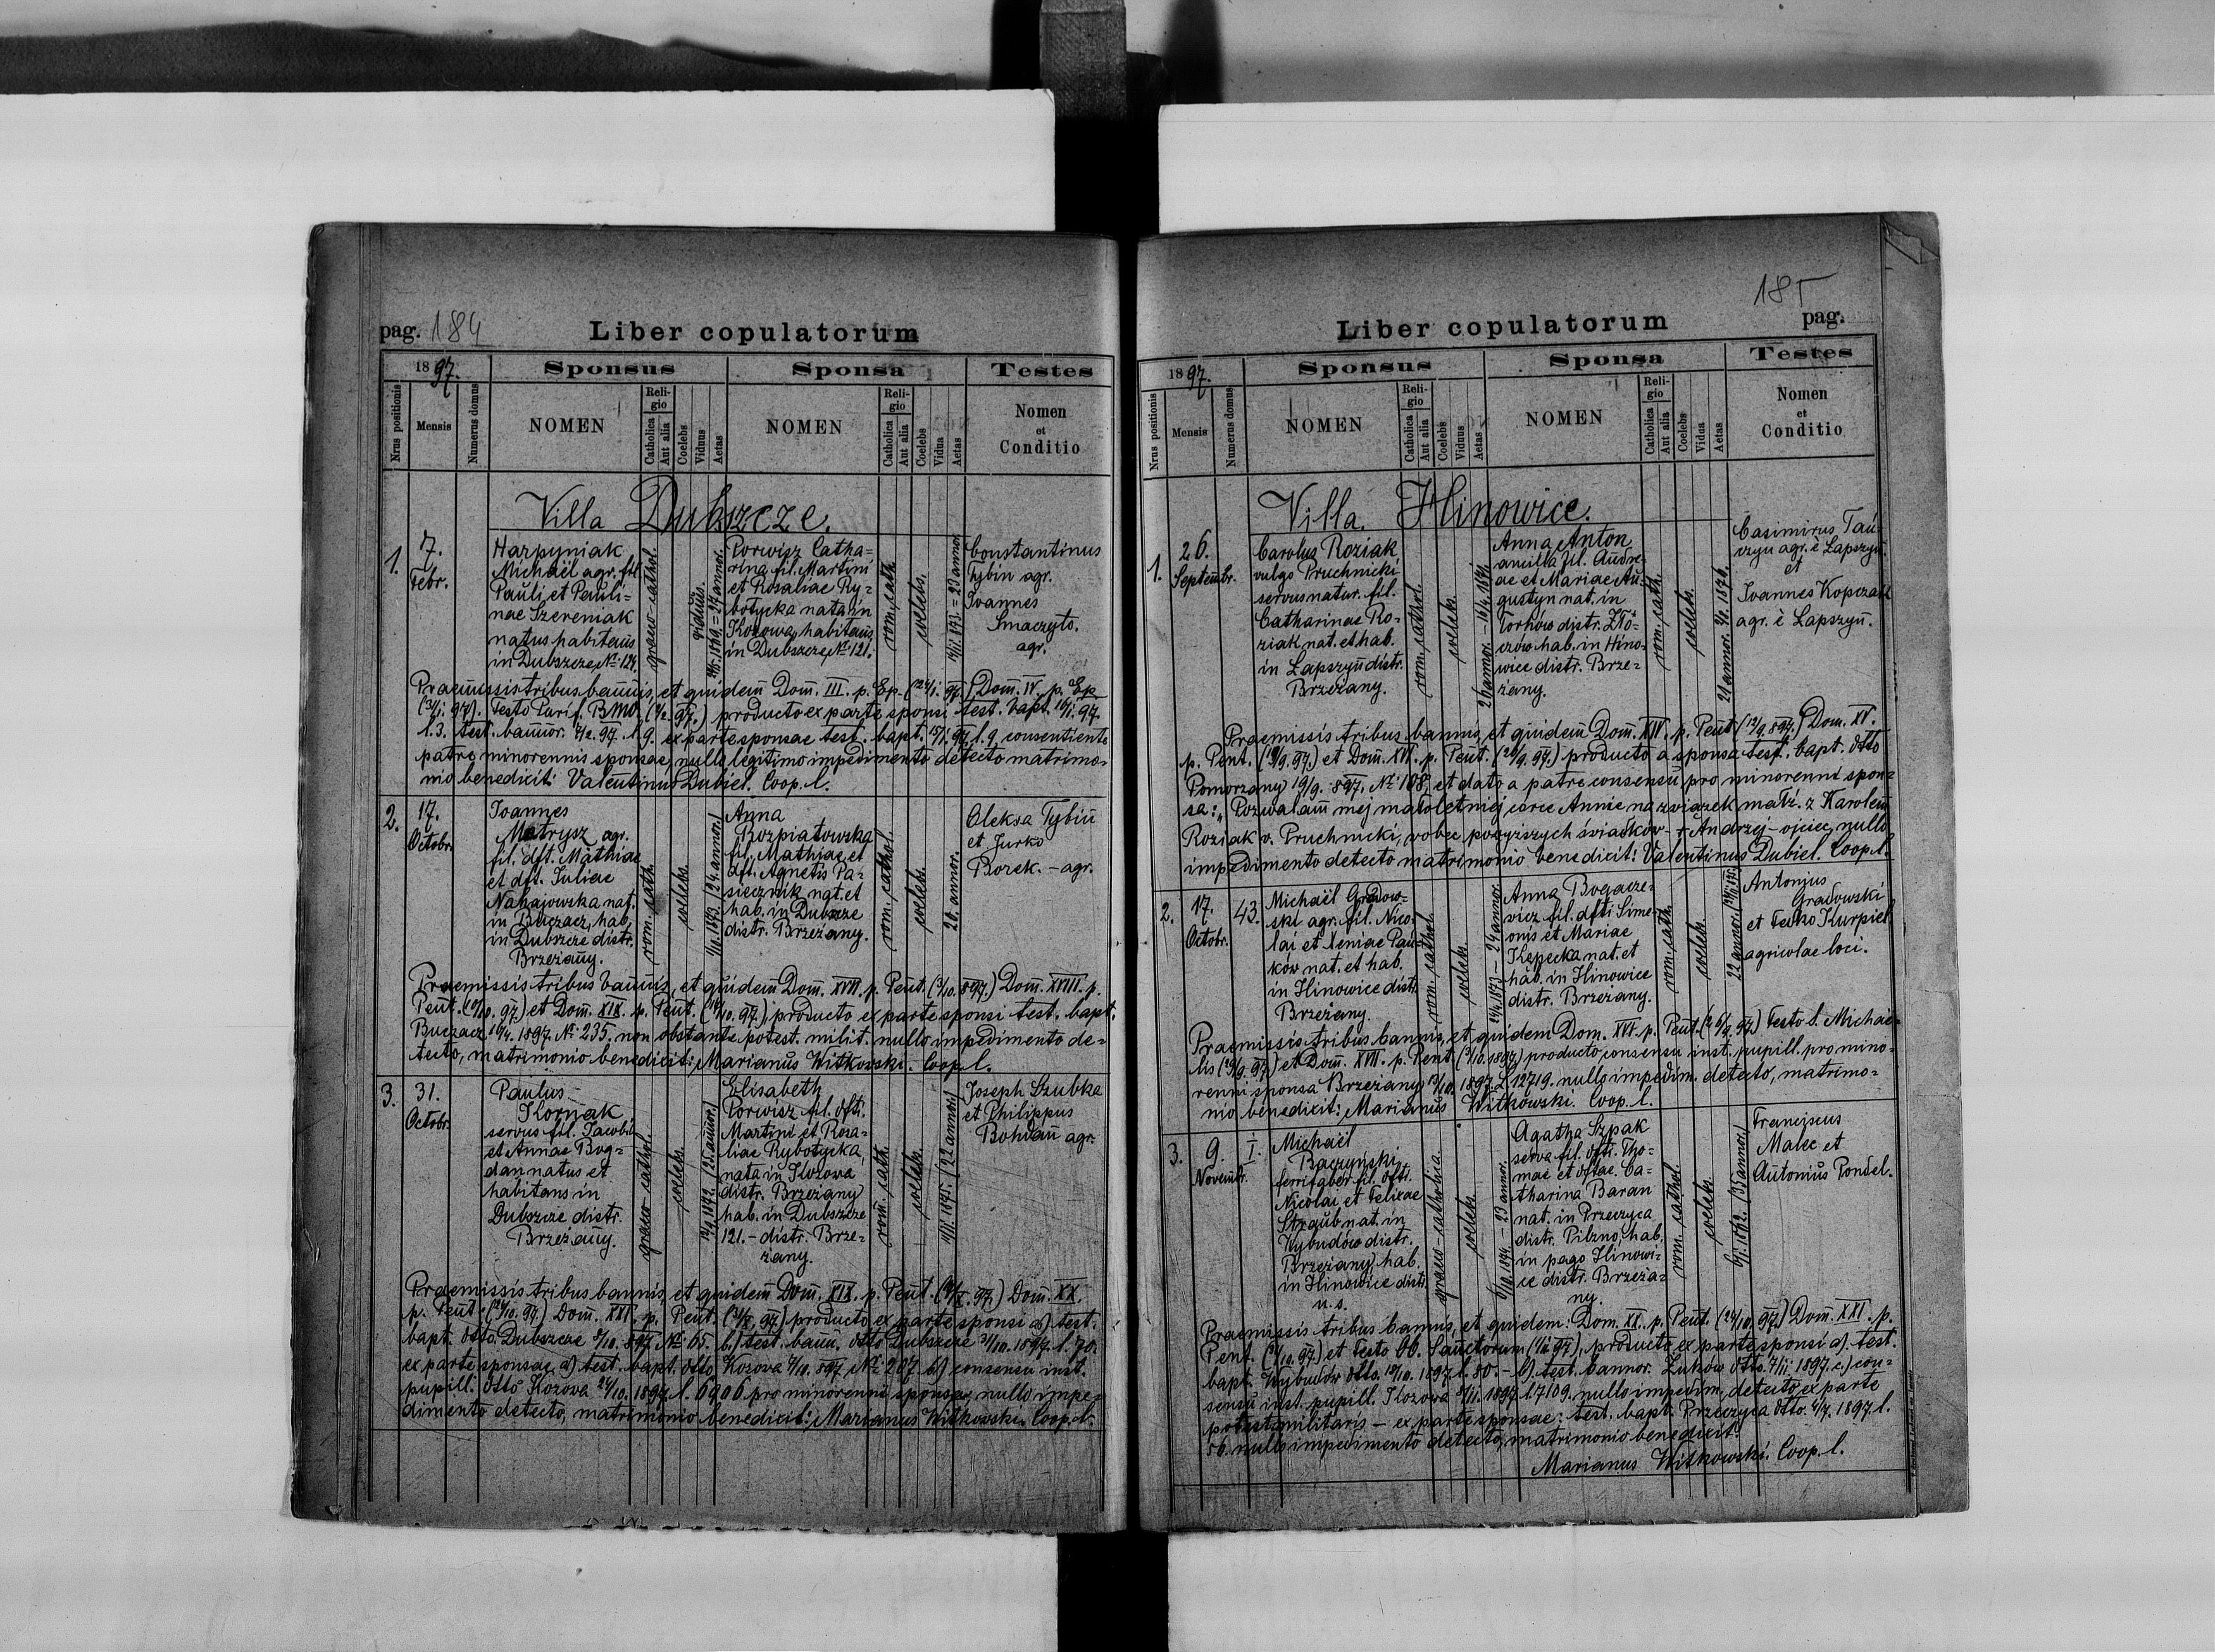 pag. 184
Liber copulatorum
1897.
Sponsus
Sponsa
Testes
Nrus positionis
Mensis
Numerus domus
NOMEN
Religio
Catholica
Aut alia
Coelebs
Viduus
Aetas
NOMEN
Religio
Catholica
Aut alia
Coelebs
Vidua
Aetas
Nomen
et
Conditio
Villa Dubszcze.
1.
7.
Febr.
Harpyniak
Michaël agr. fil.
Pauli et Pauli=
nae Szereniak
natus habitans
in Dubszcze, No: 124.
graeco-cathol.
viduus.
Porwisz Catha=
rina fil. Martini
et Rosaliae Ry=
botycka nata in
Kozowa, habitans
in Dubszcze, No: 121.
rom. cath.
coelebs.
Constantinus
Tybin agr.
Joannes
Smaczyło.
agr.
Praemissis tribus bannis, et quidem Dom. III. p. Ep. (24/1. 97) Dom. IV. p. Ep
(31/1. 97). Festo Purif. BMV. (2/2. 97.) producto ex parte sponsi test. bapt. 16/1. 97.
l. 3. test. bannor. 7/2. 97. l. 9. ex parte sponsae test. bapt. 15/1. 97. l. 9. consentiente
patre minorennis sponsae, nullo legitimo impedimento detecto matrimo=
nio benedixit: Valentinus Dubiel. Coop. l.
2.
17.
Octobr.
Joannes
Matrysz agr.
fil. dft. Mathiae
et dft. Juliae
Nahajowska nat.
in Buczacz, hab.
in Dubszcze distr.
Brzeżany.
rom. cath.
coelebs.
Anna
Rozpiatowska
fil. Mathiae et
dft. Agnetis Pa=
siecznik nat. et
hab. in Dubszcze
distr. Brzeżany.
rom. cathol.
coelebs.
20. annor.
Oleksa Tybin
et Jurko
Borek. - agr.
Praemissis tribus bannis, et quidem Dom. XVII. p. Pent. (3/10. 897.) Dom. XVIII. p.
Pent. (10/10. 97.) et Dom. XIX. p. Pent. (17/10. 97.), producto ex parte sponsi test. bapt.
Buczacz 10/4. 1897. No: 235. non obstante potest. milit. nullo impedimento de=
tecto, matrimonio benedixit: Marianus Witkowski. Coop. l.
3.
31.
Octobr.
Paulus
Korniak
servus fil. Jacobi
et Annae Bog=
dan natus et
habitans in
Dubszcze distr.
Brzeżany.
graeco-cathol.
coelebs.
Elisabeth
Porwisz fil. dfti.
Martini et Rosa=
liae Rybotycka,
nata in Kozowa
distr. Brzeżany
hab. in Dubszcze
121. - distr. Brze=
żany.
rom. cath.
coelebs.
Joseph Szubka
et Philippus
Bohdan agr.
Praemissis tribus bannis, et quidem Dom. XIX. p. Pent. (17/X. 97.) Dom. XX.
p. Pent. (24/10. 97.) Dom. XXI. p. Pent. (31/X. 97) producto ex parte sponsi a) test.
bapt. ddto. Dubszcze 8/10. 897 No 65. b) test. bann. ddto Dubszcze 31/10. 1897. l. 70.
ex parte sponsae a) test. bapt. ddto Kozowa 7/10. 897 No: 207. b) consensu inst.
pupill. ddto Kozowa 24/10. 1897. l. 6906. pro minorenni sponsae, nullo impe=
dimento detecto, matrimonio benedixit: Marianus Witkowski. Coop. l.
185
Liber copulatorum
pag.
1897.
Sponsus
Sponsa
Testes
Nrus positionis
Mensis
Numerus domus
NOMEN
Religio
Catholica
Aut alia
Coelebs
Viduus
Aetas
NOMEN
Religio
Catholica
Aut alia
Coelebs
Vidua
Aetas
Nomen
et
Conditio
Villa. Hinowice.
1.
26.
Septembr.
Carolus Roziak
vulgo Pruchnicki
servus natur. fil.
Catharinae Ro=
ziak nat. et hab.
in Łapszyn distr.
Brzeżany.
rom. cathol.
coelebs.
26 annor. - 16/4. 1871.
Anna Anton
ancilla fil. Andre=
ae et Mariae Au=
gustyn nat. in
Torhów distr. Zło=
czów hab. in Hino=
wice distr. Brze=
żany.
rom. cath.
coelebs.
Casimirus Tau=
czyn agr. è Łapszyn.
et
Joannes Kopczak
agr. è Łapszyn.
Praemissis tribus bannis, et quidem Dom. XIV. p. Pent. (12/9. 897.) Dom. XV.
p. Pent. (19/9. 97.) et Dom. XVI. p. Pent. (26/9. 97.) producto a sponsa test. bapt. ddto
Pomorzany 19/9. 897. No: 108, et dato a patre consensu pro minorenni spon=
sa: "Pozwalam mej małoletniej córce Annie na związek małż. z Karolem
Roziak v. Pruchnicki, wobec powyższych świadków - + Andrzej - ojciec, nullo
impedimento detecto matrimonio benedixit: Valentinus Dubiel. Coop. l.
2.
17.
Octobr.
43.
Michaël Gradow=
ski agr. fil. Nico=
lai et Xeniae Pań=
ków nat. et hab.
in Hinowice distr.
Brzeżany.
rom. cathol.
coelebs.
Anna Bogacze=
wicz fil. dfti Sime=
onis et Mariae
Kępecka nat. et
hab. in Hinowice
distr. Brzeżany.
rom. cath.
coelebs.
Antonius
Gradowski
et Fedko Kurpiel
agricolae loci.
Praemissis tribus bannis, et quidem Dom. XVI. p. Pent. (26/9. 97.) Festo S. Michae=
lis (29/9. 97.) et Dom. XVII. p. Pent. (3/10. 1897.) producto consensu inst. pupill. pro mino=
renni sponsa Brzeżany 13/10. 1897. L 12719. nullo impedim. detecto, matrimo=
nio benedixit: Marianus Witkowski. Coop. l.
3.
9.
Novembr.
I.
Michaël
Baczyński
ferrifaber fil. dfti.
Nicolai et Felixae
Straub nat. in
Wybudów distr.
Brzeżany, hab.
in Hinowice distr.
u. s.
graeco-catholica
coelebs.
Agatha Szpak
serva fil. dfti. Tho=
mae et dftae. Ca=
tharina Baran
nat. in Przeczyca
distr. Pilzno, hab.
in pago Hinowi=
ce distr. Brzeża=
ny.
rom. cathol.
coelebs.
6/1. 1862. (35 annor.)
Franciscus
Malec et
Antonius Pondel.
Praemissis tribus bannis, et quidem: Dom. XX. p. Pent. (24/10. 97.) Dom. XXI. p.
Pent. (31/10. 97.) et Festo OO. Sanctorum (1/11. 97), producto ex parte sponsi a). test.
bapt. Wybudów ddto. 18/10. 1897. l. 80 - b). test. bannor. Żuków ddto. 7/11. 1897. c.) con=
sensu inst. pupill. Kozowa 8/11. 1897. l. 7109. nullo impedim. detecto, ex parte
potest. militaris - ex parte sponsae: test. bapt. Przeczyca ddto. 4/7. 1897. l.
56. nullo impedimento detecto, matrimonio benedixit:
Marianus Witkowski. Coop. l.